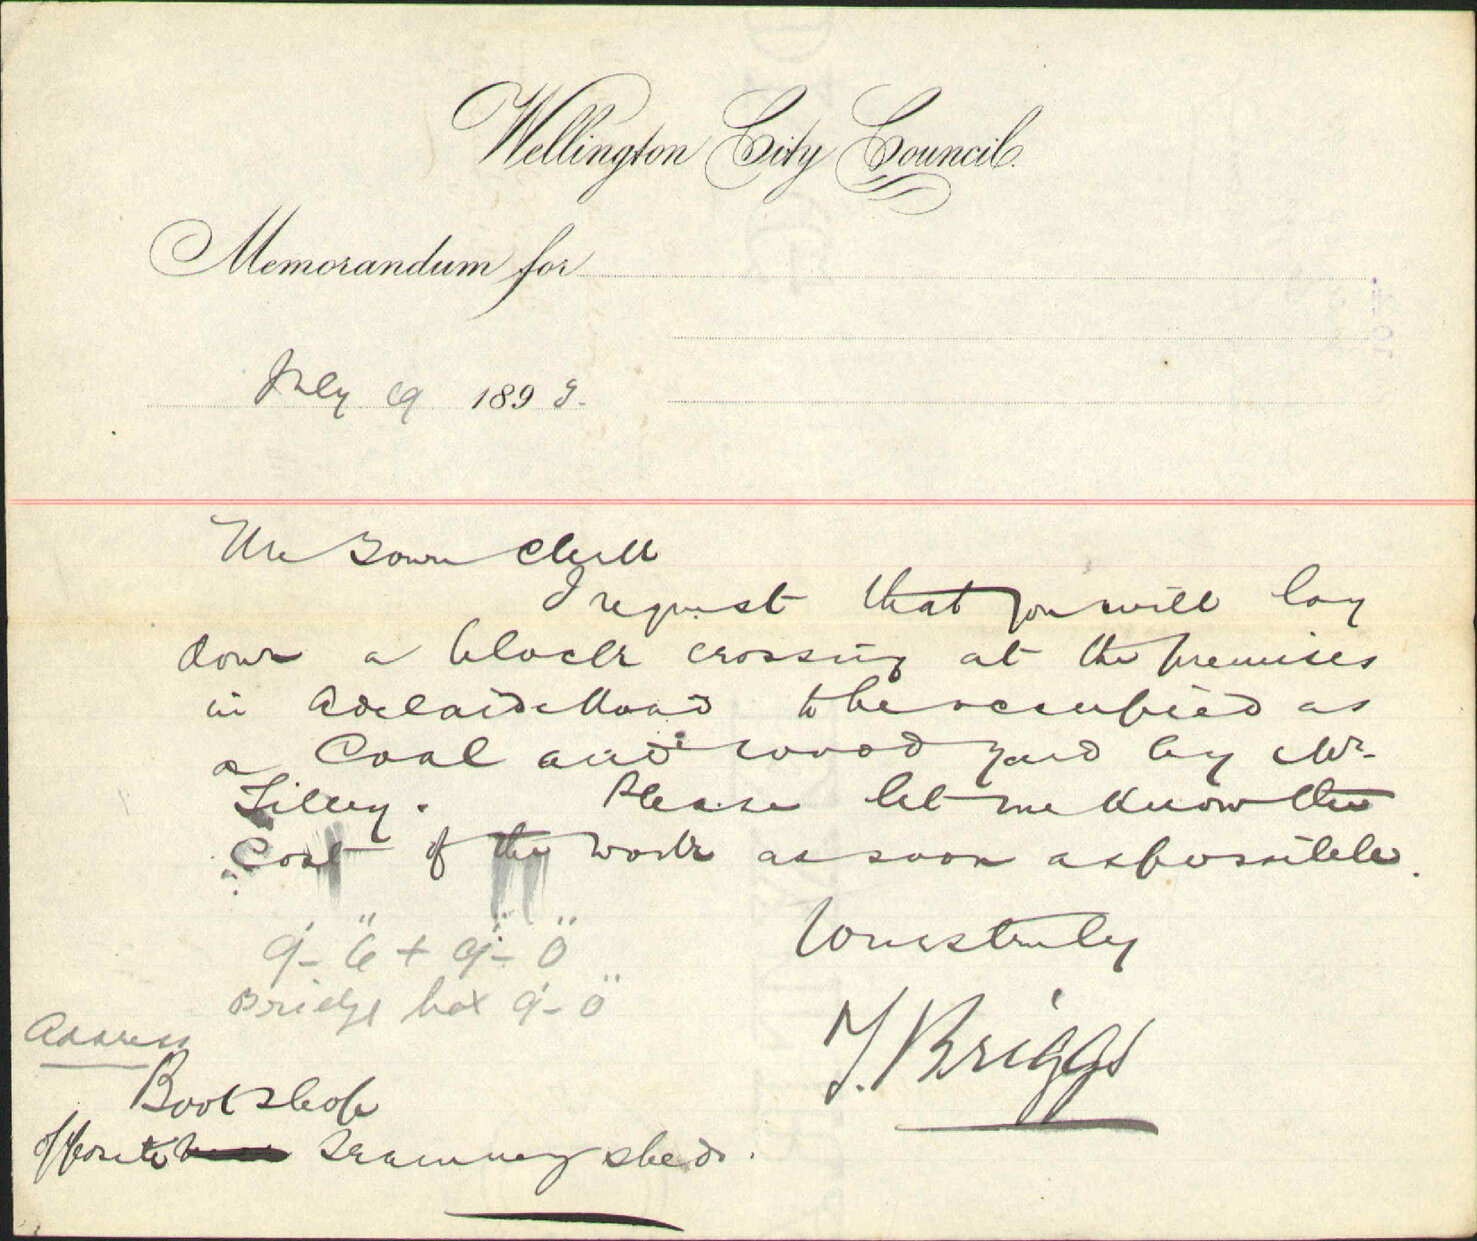 Wellington City Council.
Memorandum for
July 19 1899.
The Town Clerk
I request that you will lay
down a block crossing at the premises
in Adelaide Road to be occupied as
a Coal and wood yard by Mr
Tilley. Please let me know the
Cost of the work as soon as possible.
Yours truly
J. Briggs
9'-6" + 9'-0"
Bridge box 9'-0"
Address
Boot Shop
Opposite Tramway sheds.